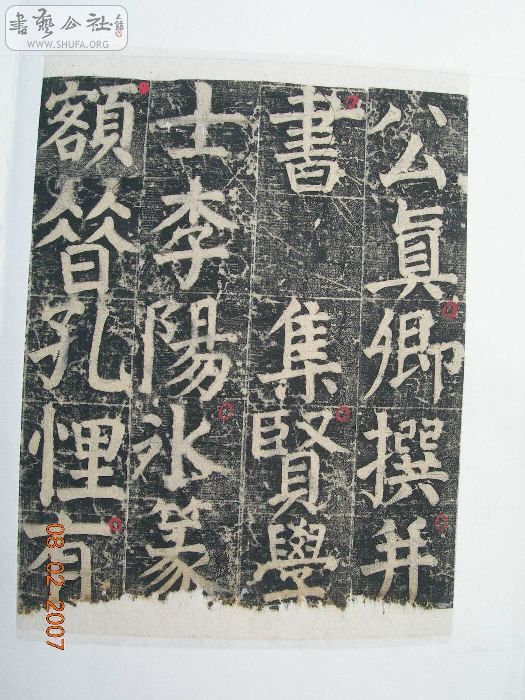 公真卿撰并
書 集賢學
士李陽冰篆
額昔孔悝有
書藝公社
WWW.SHUFA.ORG
08.02.2007